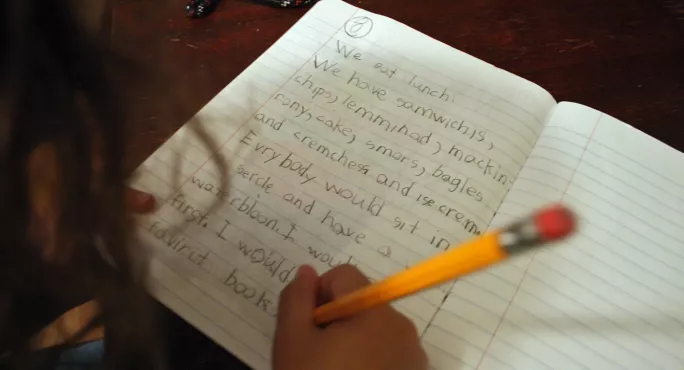 We eat lunch.
We have samwichis,
chips, lemminad, mackin
rony, cake, smors, bagles
and cremchess and ise crem.
Evrybody would sit in
sercle and have a
wa rbloon. I woul
first. I would
favirit books